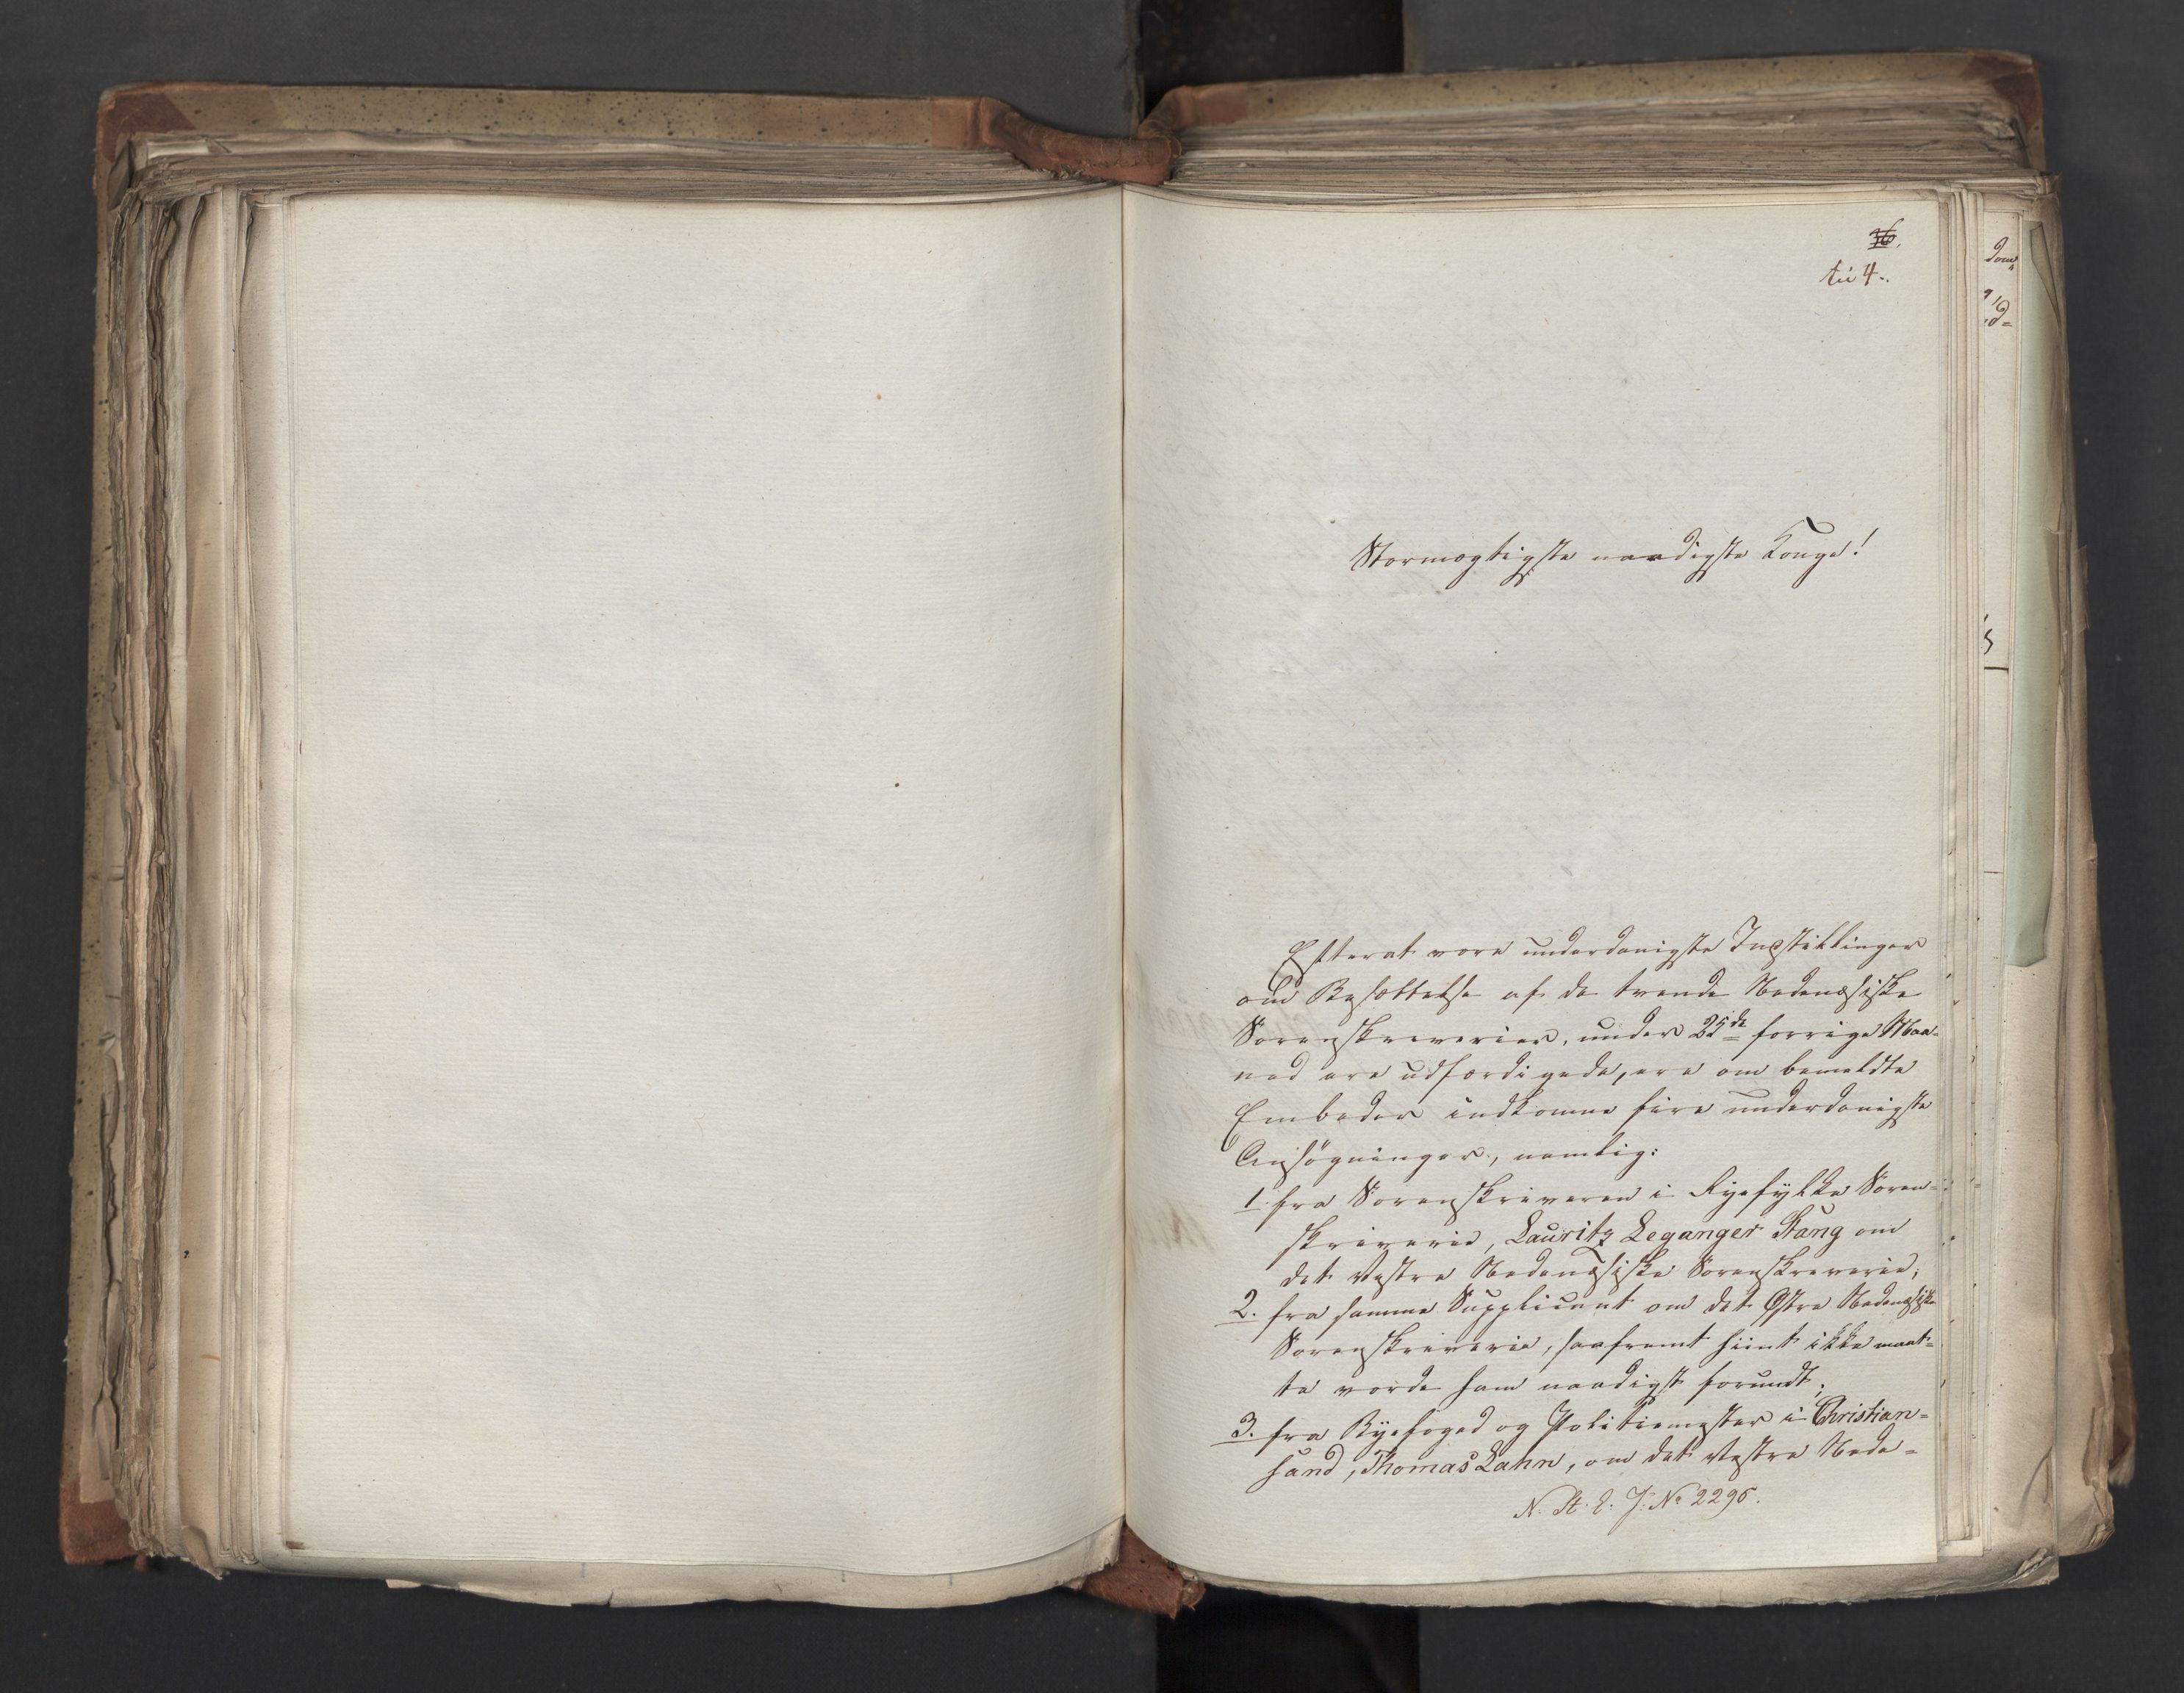 36.
til 4.
Stormægtigste naadigste Konge!
Efterat vore underdanigste Indstillinger
om Besættelse af de tvende Nedenæsiske
Sorenskreverier, under 25de forrige Maa-
ned ere udfærdigede, ere om bemeldte
Embeder indkomne fiire underdanigste
Ansøgninger, nemlig:
1. fra Sorenskriveren i Ryefylke Soren-
skriverie, Lauritz Leganger Stang om
det Vestre Nedenæsiske Sorenskreverie;
2. fra samme Supplicant om det Østre Nedenæsiske
Sorenskriverie, saafremt hiint ikke maat-
te vorde ham naadigst forundt;
3. fra Byefoged og Politiemester i Christian-
sand, Thomas Lahn, om det Vestre Nede-
N. St. E. J: No 2295.